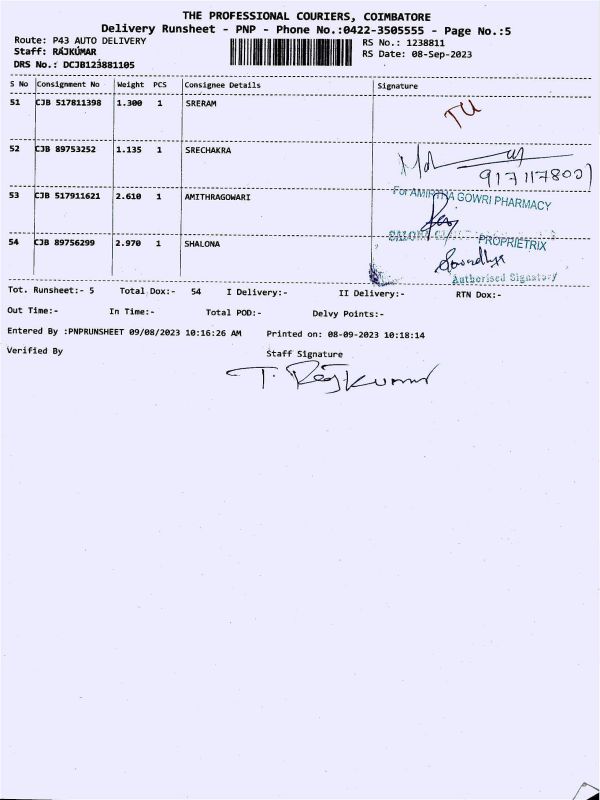 THE PROFESSIONAL COURIERS, COIMBATORE
Delivery Runsheet - PNP - Phone No.:0422-3505555 - Page No.:5
Route: P43 AUTO DELIVERY RS No.: 1238811
Staff: RAJKUMAR RS Date: 08-Sep-2023
DRS No.: DCJB123881105
S No Consignment No Weight PCS Consignee Details Signature
51 CJB 517811398 1.300 1 SRERAM TU
52 CJB 89753252 1.135 1 SRECHAKRA
9171178001
53 CJB 517911621 2.610 1 AMITHRAGOWARI For AMIRTHA GOWRI PHARMACY
PROPRIETRIX
54 CJB 89756299 2.970 1 SHALONA
Authorised Signatory
Tot. Runsheet:- 5 Total Dox:- 54 I Delivery:- II Delivery:- RTN Dox:-
Out Time:- In Time:- Total POD:- Delvy Points:-
Entered By :PNPRUNSHEET 09/08/2023 10:16:26 AM Printed on: 08-09-2023 10:18:14
Verified By Staff Signature
T. Rajkumar